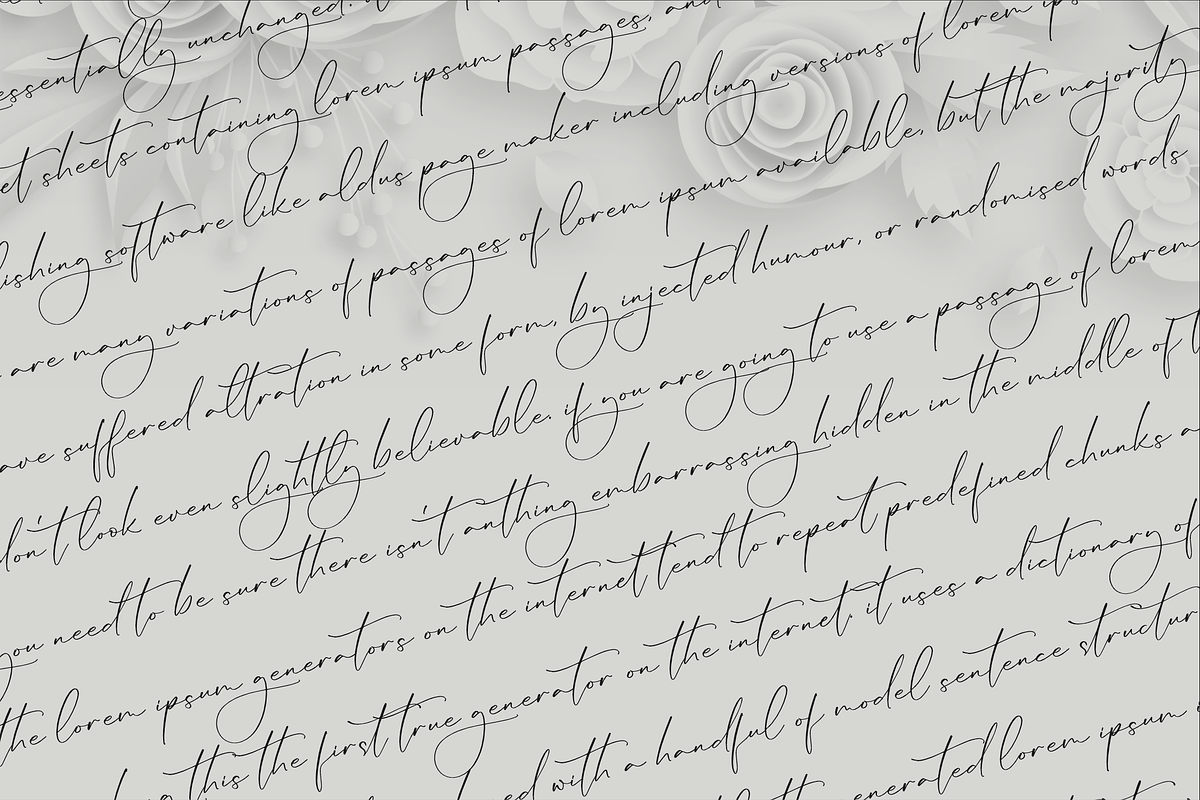 essentially unchanged.
sheets containing lorem ipsum passages, and
software like aldus page maker including versions of lorem
are many variations of passages of lorem ipsum available, but the majority
suffered altration in some form, by injected humour, or randomised words
don't look even slightly believable. if you are going to use a passage of lorem
you need to be sure there isn't anthing embarrassing hidden in the middle of
the lorem ipsum generators on the internet tend to repeat predefined chunks
this the first true generator on the internet. it uses a dictionary of
with a handful of model sentence
lorem ipsum